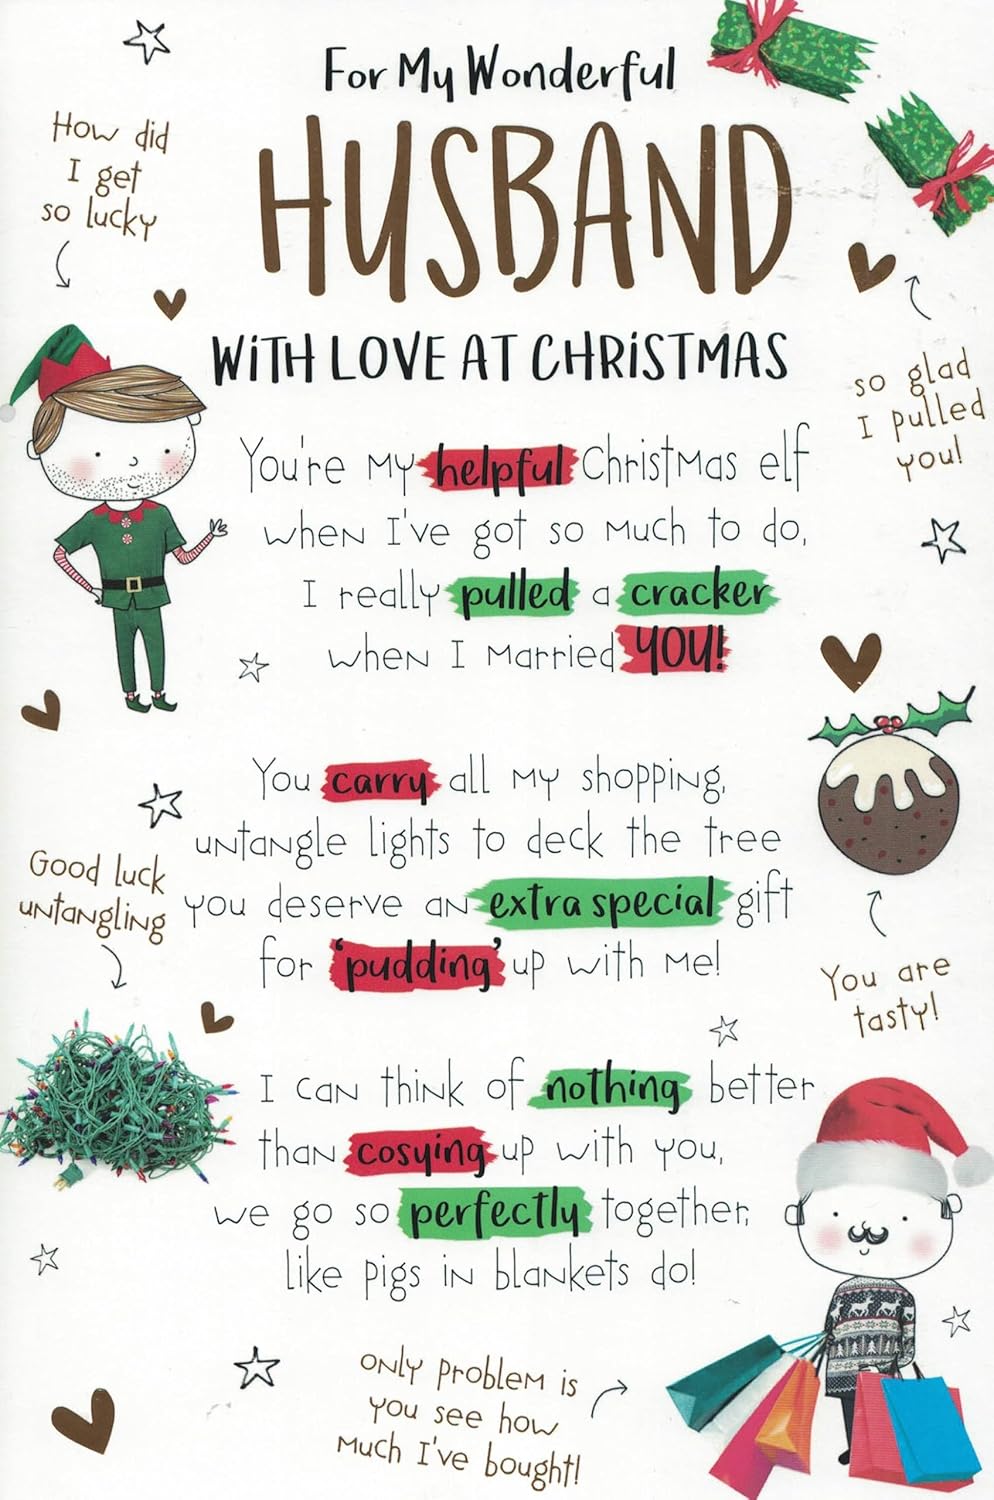 For My Wonderful
HUSBAND
WITH LOVE AT CHRISTMAS
How did
I get
so lucky
so glad
I pulled
you!
You're my helpful Christmas elf
when I've got so much to do,
I really pulled a cracker
when I married YOU!
You carry all my shopping,
untangle lights to deck the tree
you deserve an extra special gift
for 'pudding' up with me!
Good luck
untangling
You are
tasty!
I can think of nothing better
than cosying up with you,
we go so perfectly together,
like pigs in blankets do!
only problem is
you see how
much I've bought!